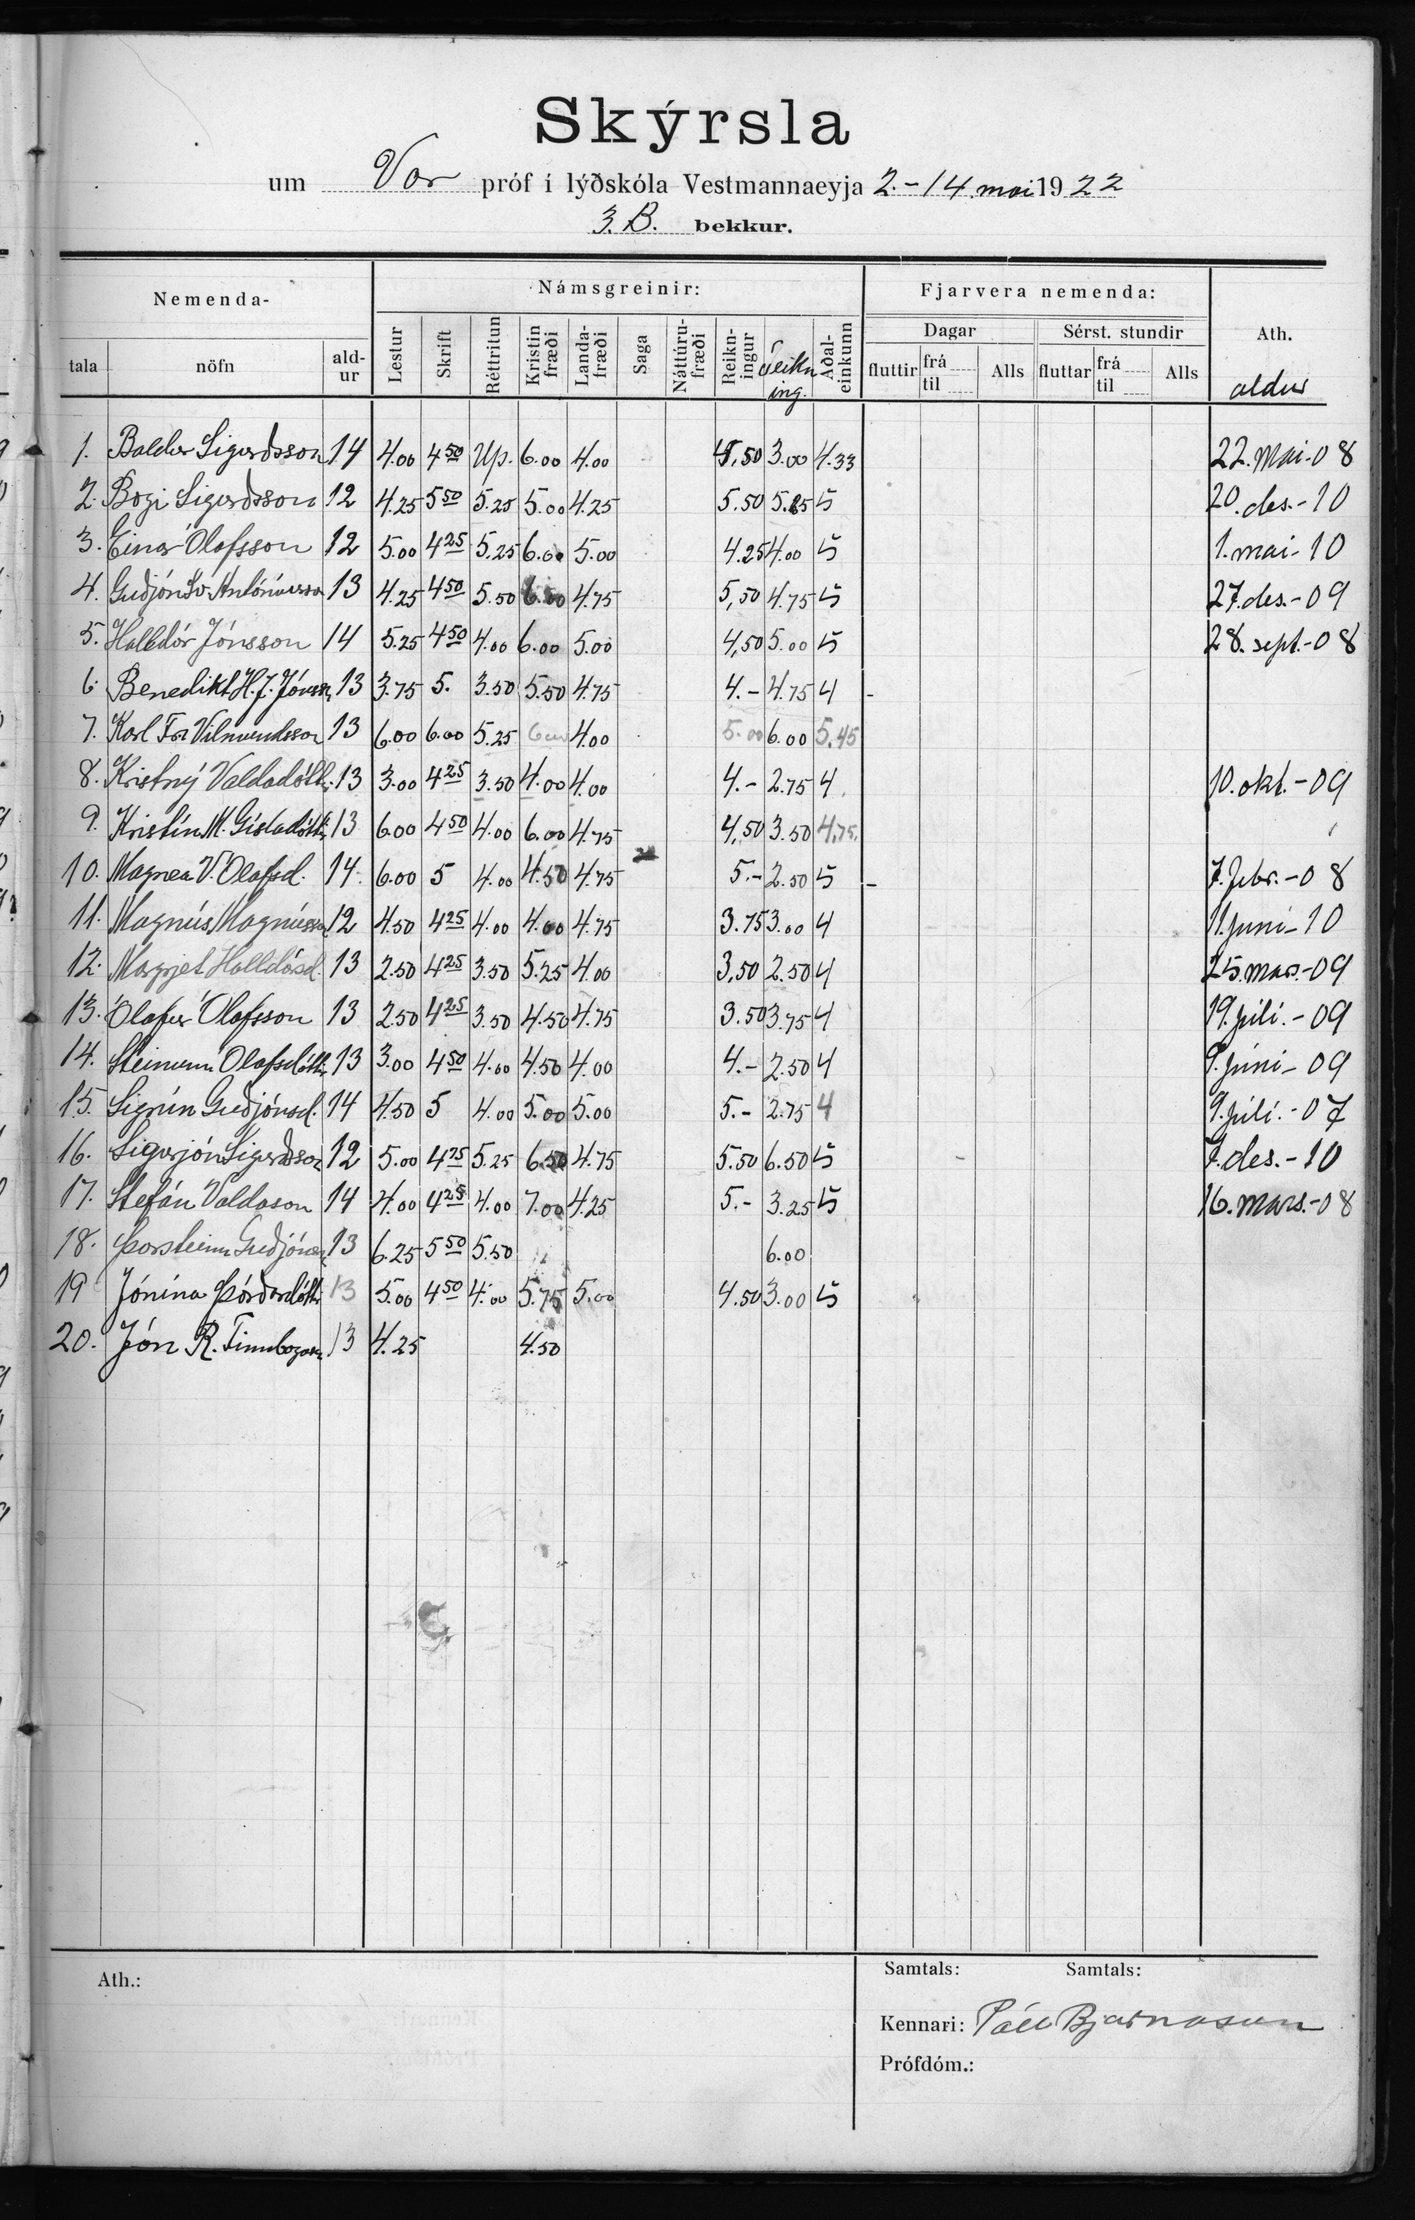 Skýrsla
um Vor próf í lýðskóla Vestmannaeyja 2.-14. mai 1922
3.B. bekkur.
Nemenda- Námsgreinir: Fjarvera nemenda: Ath.
Dagar Sérst. stundir
tala nöfn ald-ur Lestur Skrift Réttritun Kristin fræði Landa-fræði Saga Náttúru-fræði Reikn-ingur Teikn ing. Aðal-einkunn fluttir frá til Alls fluttar frá til Alls aldur
1. Baldur Sigurðsson 14 4.00 4 50 Up. 6.00 4.00 4,50 3.00 4.33 22. mai-08
2. Bogi Sigurðsson 12 4.25 5 50 5.25 5.00 4.25 5.50 5.25 5 20. des.-10
3. Einar Ólafsson 12 5.00 4 25 5.25 6.00 5.00 4.25 4.00 5 1. mai-10
4. Guðjón Sv. 13 4.25 4 50 5.50 6.50 4.75 5,50 4.75 5 27. des.-09
5. Halldór Jónsson 14 5.25 4 50 4.00 6.00 5.00 4,50 5.00 5 28. sept.-08
6. Benedikt H. J. Jónsson 13 3.75 5. 3.50 5.50 4.75 4.- 4.75 4 -
7. Karl Fr. Vilmundsson 13 6.00 6.00 5.25 6.00 4.00 5.00 6.00 5.45
8. Kristný Valdadótt. 13 3.00 4 25 3.50 4.00 4.00 4.- 2.75 4. 10. okt.-09
9. Kristín M. Gísladótt. 13 6.00 4 50 4.00 6.00 4.75 4,50 3.50 4.75.
10. Magnea V. Ólafsd. 14. 6.00 5 4.00 4.50 4.75 5.- 2.50 5 - 7. febr.-08
11. Magnús Magnússon 12 4.50 4 25 4.00 4.00 4.75 3.75 3.00 4 11. juni-10
12. Margrjet Halldósd. 13 2.50 4 25 3.50 5.25 4.00 3,50 2.50 4 25. mars.-09
13. Ólafur Ólafsson 13 2.50 4 25 3.50 4.50 4.75 3.50 3.75 4 19. júlí.-09
14. Steinunn Ólafsdótti 13 3.00 4 50 4.00 4.50 4.00 4.- 2.50 4 9. júni-09
15. Sigrún Guðjónsd. 14 4.50 5 4.00 5.00 5.00 5.- 2.75 4 9. júlí.-07
16. Sigurjón Sigurðsson 12 5.00 4 25 5.25 6.50 4.75 5.50 6.50 5 7. des.-10
17. Stefán Valdason 14 4.00 4 25 4.00 7.00 4.25 5.- 3.25 5 16. mars.-08
18. Þorsteinn Guðjónss. 13 6.25 5 50 5.50 6.00
19 Jónína Þórðardótti 13 5.00 4 50 4.00 5.75 5.00 4.50 3.00 5
20. Jón R. Finnbogason 13 4.25 4.50
Ath.: Samtals: Samtals:
Kennari: Páll Bjarnason
Prófdóm.: